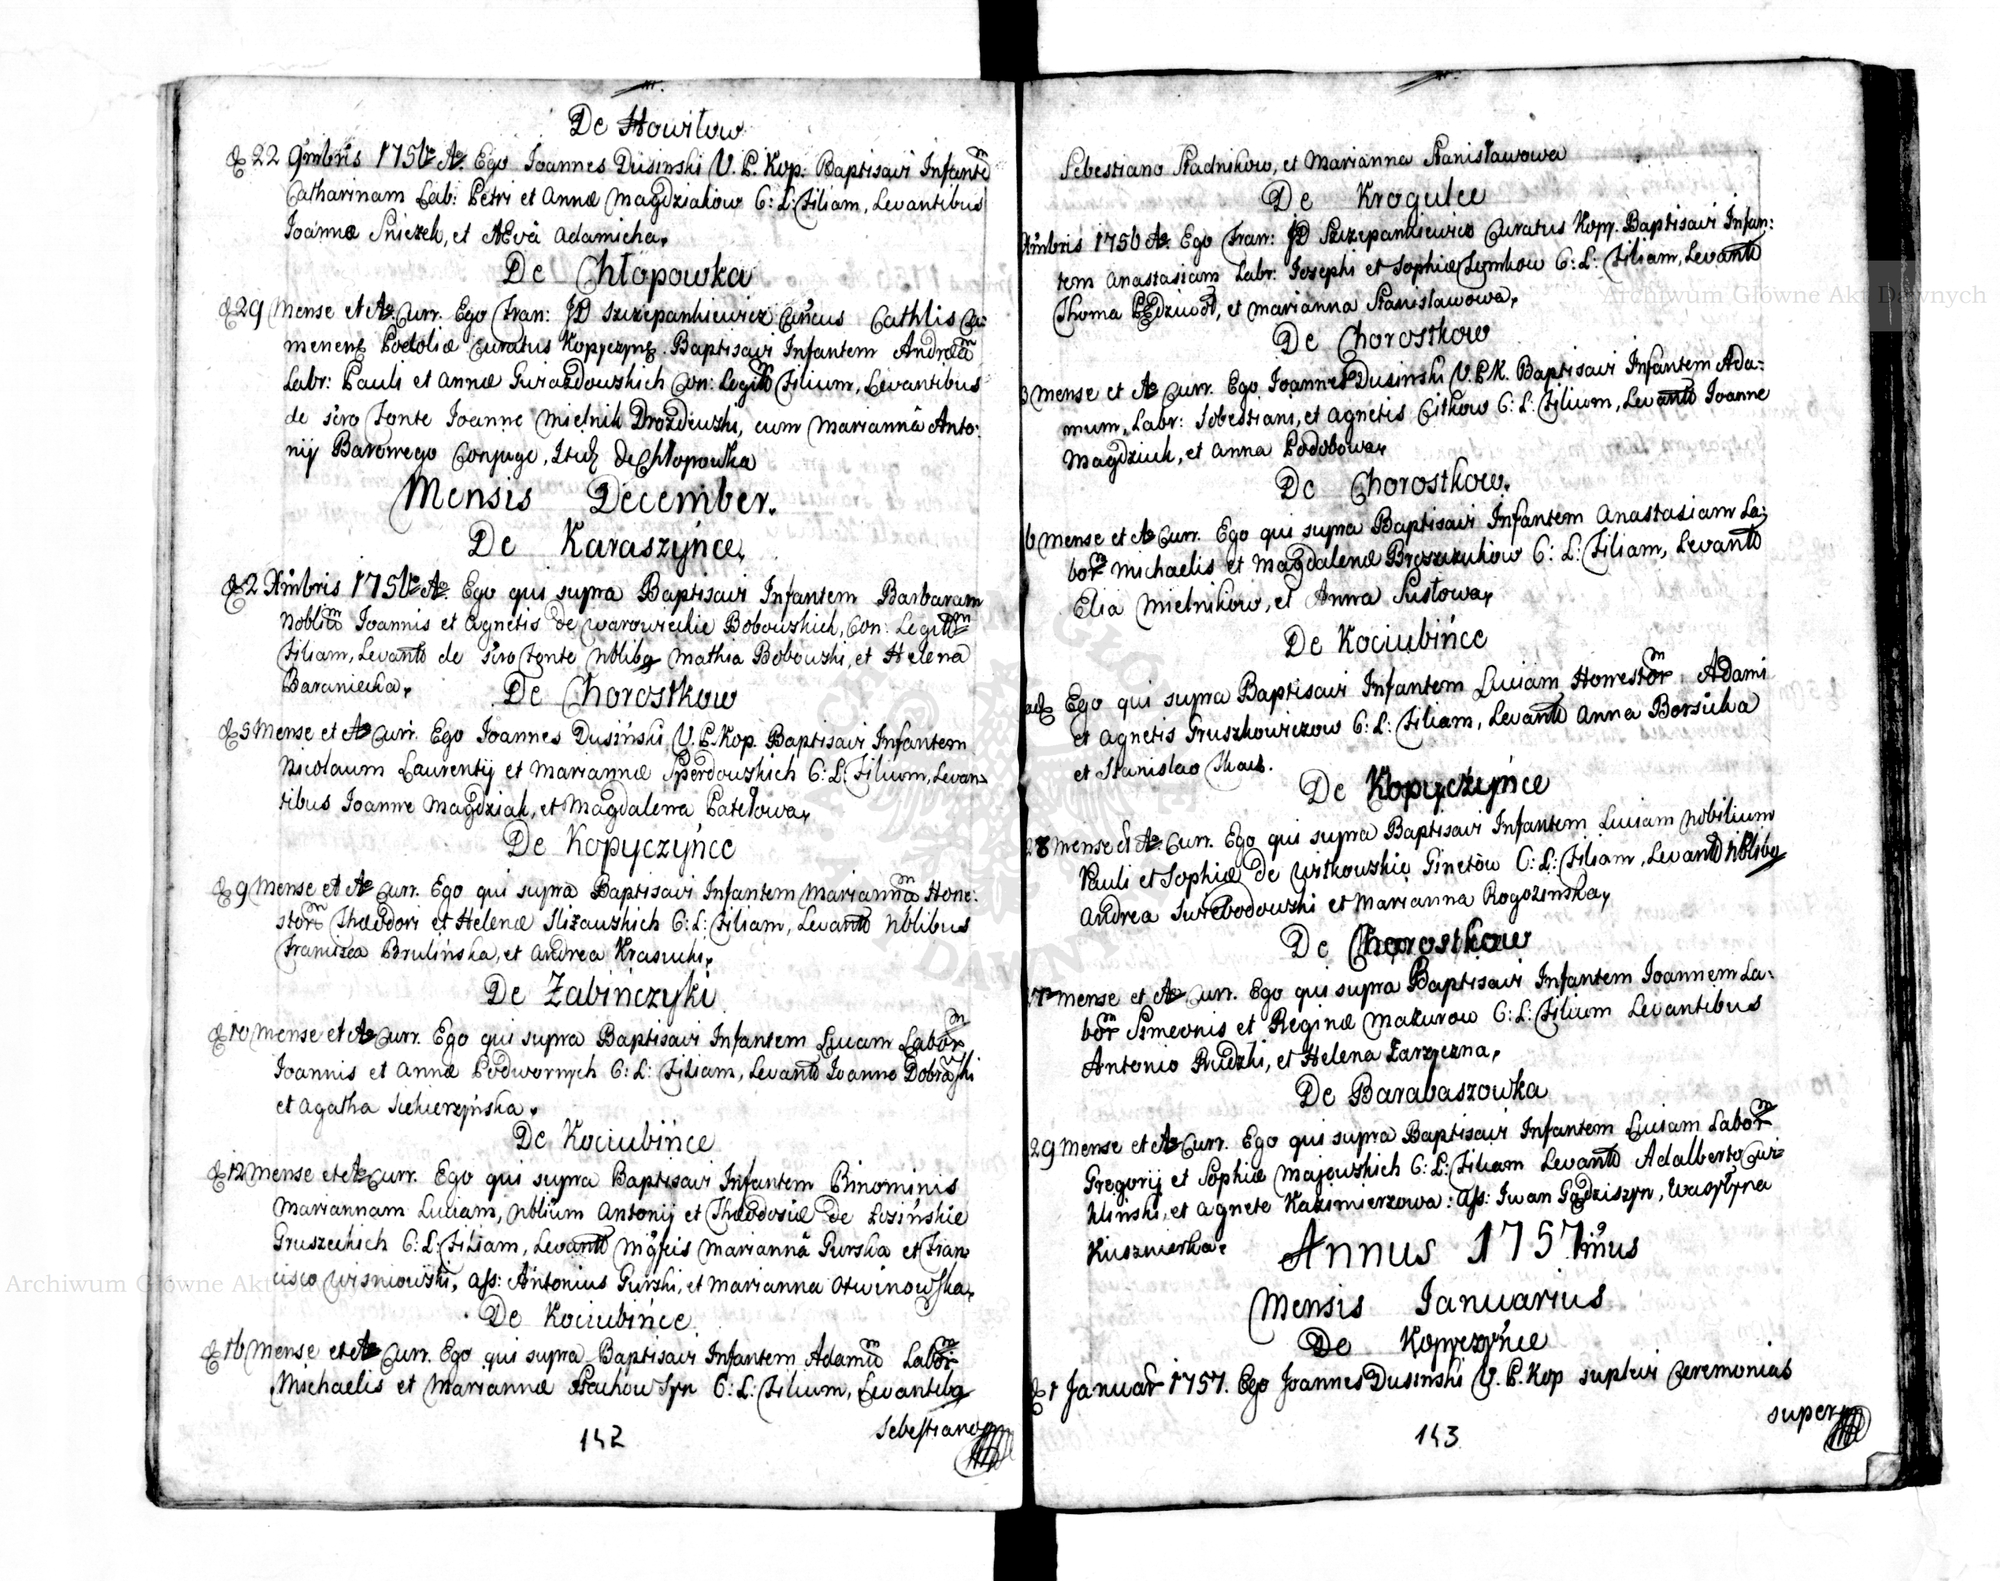 De Howiłow
D 22 9mbris 1756 Ao. Ego Joannes Dusinski V. P. Kop: Baptisavi Infantem
Catharinam Lab: Petri et Annæ Magdziakow C: L: Filiam, Levantibus
Joanne Sniezek, et Eva Adamicha.
De Chłopowka
D 29 Mense et Ao Curr. Ego Fran: Szczepankiewicz Cathlis Ca=
menens Podoliæ Curatus Kopyczyn. Baptisavi Infantem Andream
Labr: Pauli et Annæ Gwazdowskich Con: Legitm Filium, Levantibus
de s̃cro Fonte Joanne Mielnik Drozdewski, cum Marianna Anto:
nij Conjuge, de Chłopowka
Mensis December.
De Karaszyńce
D 2 Xmbris 1756 Ao. Ego qui supra Baptisavi Infantem Barbaram
Noblium Joannis et Agnetis de Bobowskich, Con: Legittm
Filiam, Levantb de s̃cro Fonte Nblibq Mathia Bobowski, et Helena
Baraniecka.
De Chorostkow
D 5 Mense et Ao Curr. Ego Joannes Dusiński V. P. Kop. Baptisavi Infantem
Nicolaum Laurentij et Mariannæ Sperdowskich C: L: Filium, Levan=
tibus Joanne Magdziak, et Magdalena Patełowa.
De Kopyczyńce
D 9 Mense et Ao Curr. Ego qui supra Baptisavi Infantem Mariannam Hone:
storm Theodori et Helenæ Slizawskich C: L: Filiam, Levantb Nblibus
Francisca Brulińska, et Andrea Krasucki.
De Żabińczyki
D 10 Mense et Ao Curr. Ego qui supra Baptisavi Infantem Luciam Laborm
Joannis et Annæ Podwornych C: L: Filiam, Levantb Joanne
et Agatha Siekierzyńska.
De Kociubińce
D 12 Mense et Ao Curr. Ego qui supra Baptisavi Infantem Binominis
Mariannam Luciam, Nblium Antonij et Theodosiæ de Łosińskie
Gruszeckich C: L: Filiam, Levantb Mgficis Marianna Gurska et Fran
cisco Wisniowski, Ass: Antonius Gurski, et Marianna Otwinowska.
De Kociubińce
D 16 Mense et Ao Curr. Ego qui supra Baptisavi Infantem Adamum Laborm
Michaelis et Mariannæ C: L: Filium, Levantibq
Sebestiano
142
Sebestiano Stadnikow, et Marianna Stanisławowa
De Krogulce
Xmbris 1756 Ao. Ego Fran: Szczepankiewicz Curatus Kopy. Baptisavi Infan:
tem Anastasiam Labr: Josephi et Sophiæ C: L: Filiam, Levantb
Thoma et Marianna Stanislawowa.
De Chorostkow
Mense et Ao Curr. Ego Joannes Dusinski V. P. K. Baptisavi Infantem Ada=
mum, Labr: Sebestiani, et Agnetis Citkow C: L: Filium, Levantb Joanne
Magdziuk, et Anna Podobowa.
De Chorostkow.
6 Mense et Ao Curr. Ego qui supra Baptisavi Infantem Anastasiam La:
borm Michaelis et Magdalenæ C: L: Filiam, Levantb
Elia Mielnikow, et Anna Susłowa.
De Kociubińce
Ego qui supra Baptisavi Infantem Luciam Honestorm Adami
et Agnetis Gruszkowiczow C: L: Filiam, Levantb Anna Borsucka
et Stanislao
De Kopyczyńce
28 Mense et Ao. Curr. Ego qui supra Baptisavi Infantem Luciam Nobilium
Pauli et Sophiæ de Witkowskie Ginetow C: L: Filiam, Levantb Nblibq
Andrea et Marianna Rogozinska.
De Chorostkow
Mense et Ao Curr. Ego qui supra Baptisavi Infantem Joannem La=
borm Simeonis et Reginæ Mazurow C: L: Filium Levantibus
Antonio Rudzki, et Helena Zarzyczna.
De Barabaszowka
29 Mense et Ao Curr. Ego qui supra Baptisavi Infantem Luciam Laborm
Gregorij et Sophiæ Majewskich C: L: Filiam Levantb Adalberto Cwi=
klinski, et Agnete Kazimierzowa: Ass: Iwan
Kusznierka.
Annus 1757mus
Mensis Januarius
De Kopyczyńce
D 1 Januar 1757. Ego Joannes Dusinski V. P. Kop suplevi Ceremonias
super
143
Archiwum Główne Akt Dawnych
Archiwum Główne Akt Dawnych